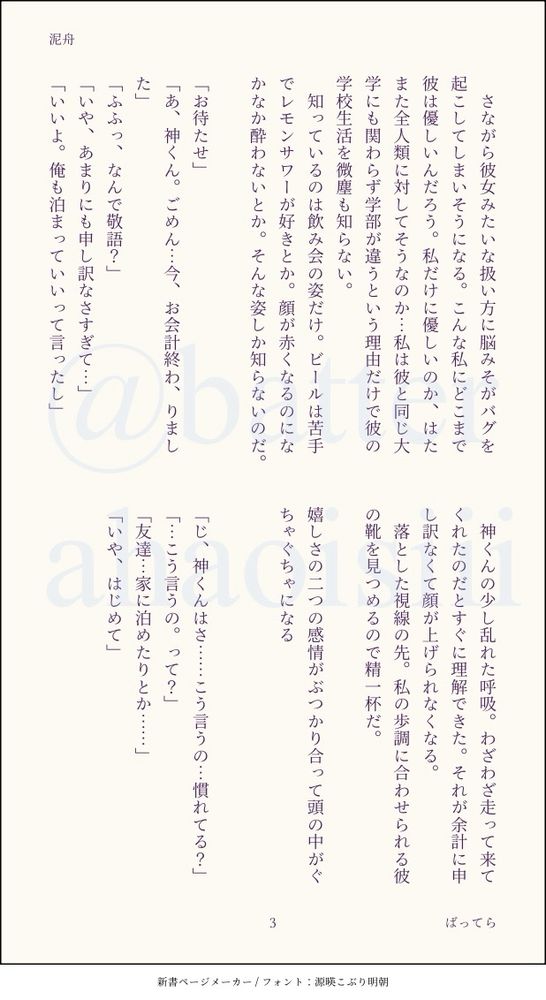 泥舟
　さながら彼女みたいな扱い方に脳みそがバグを
起こしてしまいそうになる。こんな私にどこまで
彼は優しいんだろう。私だけに優しいのか、はた
また全人類に対してそうなのか…私は彼と同じ大
学にも関わらず学部が違うという理由だけで彼の
学校生活を微塵も知らない。
　知っているのは飲み会の姿だけ。ビールは苦手
でレモンサワーが好きとか。顔が赤くなるのにな
かなか酔わないとか。そんな姿しか知らないのだ。
「お待たせ」
「あ、神くん。ごめん…今、お会計終わ、りまし
た」
「ふふっ、なんで敬語？」
「いや、あまりにも申し訳なさすぎて…」
「いいよ。俺も泊まっていいって言ったし」
　神くんの少し乱れた呼吸。わざわざ走って来て
くれたのだとすぐに理解できた。それが余計に申
し訳なくて顔が上げられなくなる。
　落とした視線の先。私の歩調に合わせられる彼
の靴を見つめるので精一杯だ。
嬉しさの二つの感情がぶつかり合って頭の中がぐ
ちゃぐちゃになる
「じ、神くんはさ……こう言うの…慣れてる？」
「…こう言うの。って？」
「友達…家に泊めたりとか……」
「いや、はじめて」
@batter
ahaoisiii
3
ばってら
新書ページメーカー / フォント：源暎こぶり明朝